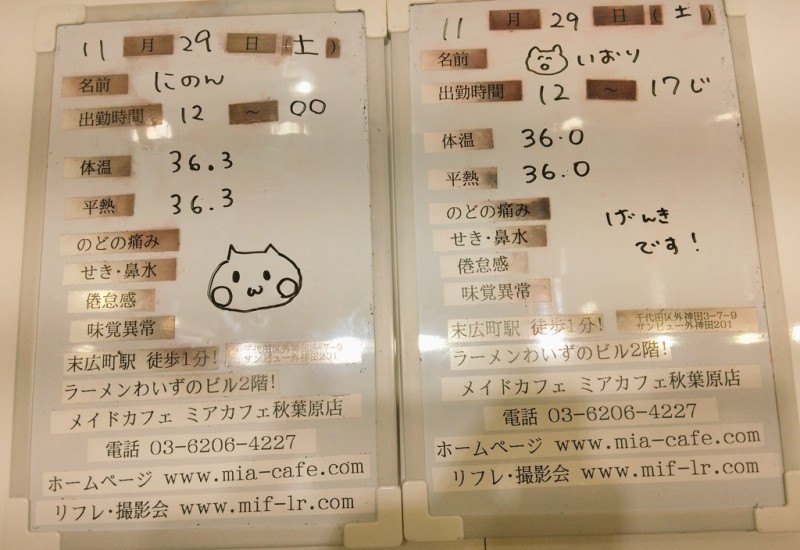 11 月 29 日 (土)
名前 にのん
出勤時間 12 ～ 00
体温 36.3
平熱 36.3
のどの痛み
せき・鼻水
倦怠感
味覚異常
末広町駅 徒歩1分! 千代田区外神田3-7-9
サンビュー外神田201
ラーメンわいずのビル2階!
メイドカフェ ミアカフェ秋葉原店
電話 03-6206-4227
ホームページ www.mia-cafe.com
リフレ・撮影会 www.mif-lr.com
11 月 29 日 (土)
名前 いおり
出勤時間 12 ～ 17じ
体温 36.0
平熱 36.0
のどの痛み
せき・鼻水
倦怠感
味覚異常
げんき
です!
末広町駅 徒歩1分! 千代田区外神田3-7-9
サンビュー外神田201
ラーメンわいずのビル2階!
メイドカフェ ミアカフェ秋葉原店
電話 03-6206-4227
ホームページ www.mia-cafe.com
リフレ・撮影会 www.mif-lr.com